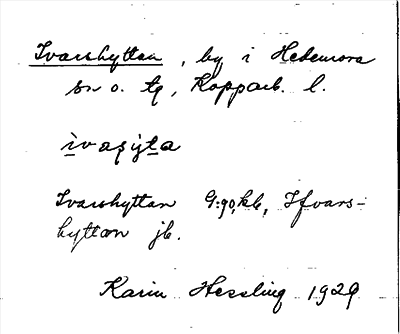 Ivarshyttan, by i Hedemora
sn o. tg, Kopparb. l.
ivaşyta
Ivarshyttan G:90, kb, Ifvars-
hyttan jb.
Karin Hessling 1929